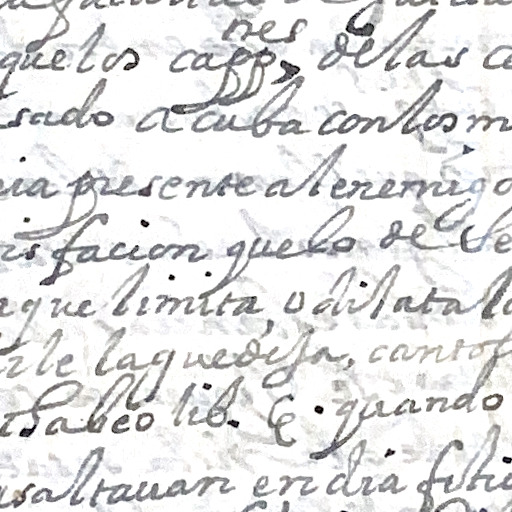 que los capp.nes de las ce
sado a cuba con los m
ia presente al enemigo
is facion que lo de
e que limita, o dilata la
le la que
lib. 6. quando
asaltauan en dia